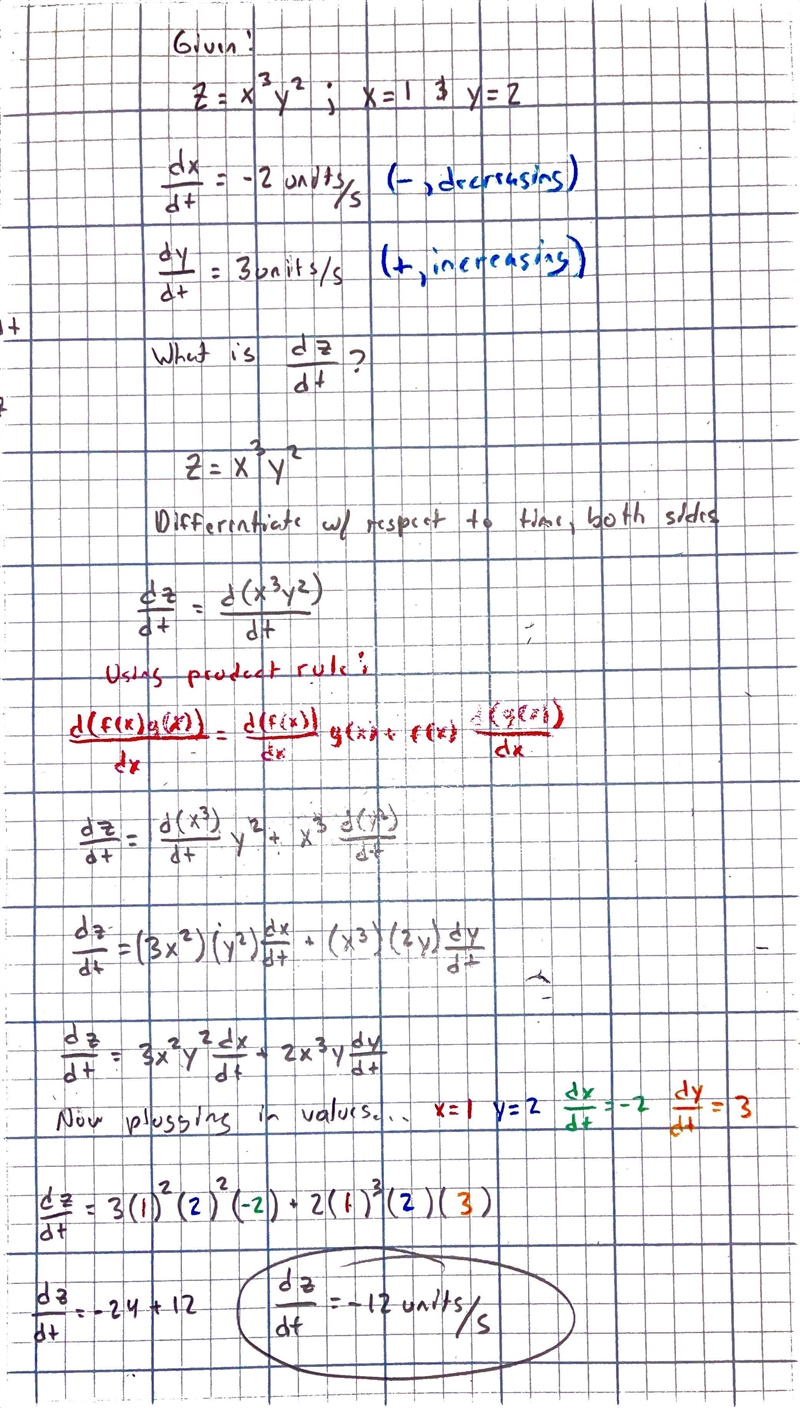 Given:
z = x³y² ; x=1 & y=2
dx/dt = -2 units/s (-, decreasing)
dy/dt = 3 units/s (+, increasing)
What is dz/dt?
z = x³y²
Differentiate w/ respect to time, both sides
dz/dt = d(x³y²)/dt
Using product rule:
d(f(x)g(x))/dx = d(f(x))/dx g(x) + f(x) d(g(x))/dx
dz/dt = d(x³)/dt y² + x³ d(y²)/dt
dz/dt = (3x²)(y²) dx/dt + (x³)(2y) dy/dt
dz/dt = 3x²y² dx/dt + 2x³y dy/dt
Now plugging in values... x=1 y=2 dx/dt = -2 dy/dt = 3
dz/dt = 3(1)²(2)²(-2) + 2(1)³(2)(3)
dz/dt = -24 + 12 dz/dt = -12 units/s